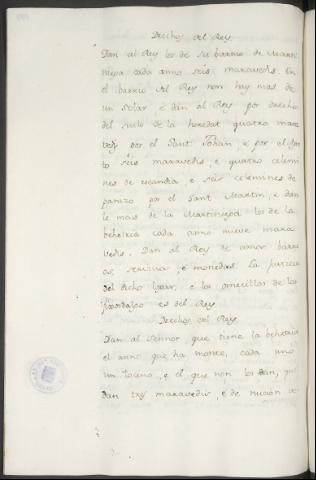 Drechos del Rey
Dan al Rey los de su barrio de Marti
niega cada anno seis maravedis. En
el barrio del Rey non hay mas de
un solar, e dan al Rey por drecho
del suelo de la heredat quatro mara
vedis por el Sant Johan, e por el
seis maravedis, e quatro celemi
nes de escandia, e seis celemines de
panizo por el Sant Martin, e dan
le mas de la Martiniega los de la
behetria cada anno nueve mara
vedis. Dan al Rey de amor
os, servicios, e monedas. La
del dicho lugar, e los omecillos de los
es del Rey
Drechos del Rey
Dan al Sennor, que tiene la behetria
el anno que ha monte, cada uno
un tocino, e el que non los dan, que
dan maravedis, e de nucion